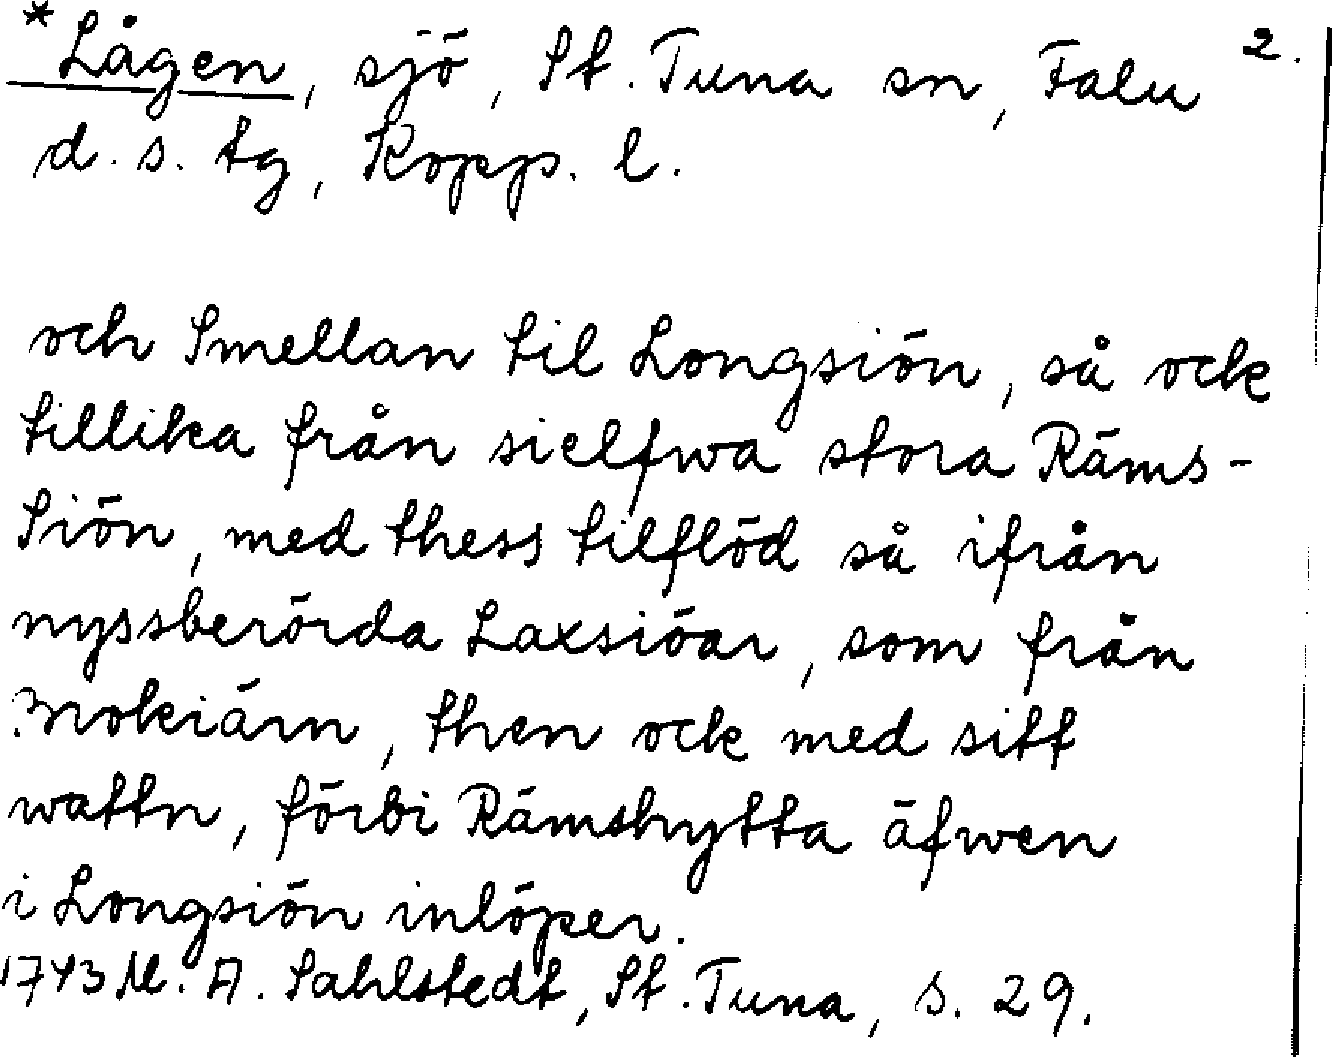 *Lågen, sjö, St. Tuna sn, Falu 2.
d. s. tg, Kopp. l.
och Smellan til Longsiön, så ock
tillika från sielfwa stora Räms-
Siön, med thess tilflöd så ifrån
nyssberörda Laxsiöar, som från
Mokiärn, then ock med sitt
wattn, förbi Rämshytta äfwen
i Longsiön inlöper.
1743 M. A. Sahlstedt, St. Tuna, s. 29.